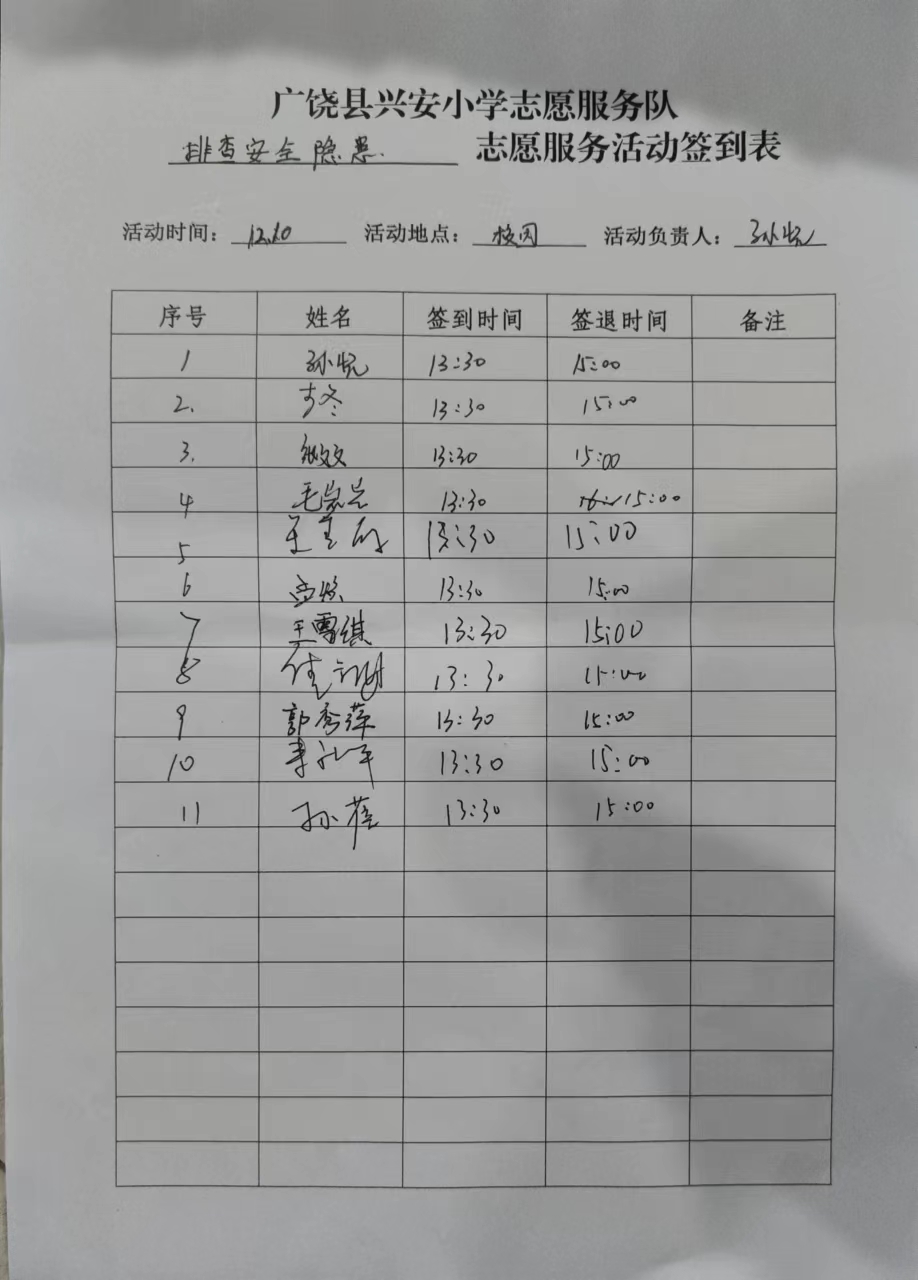 广饶县兴安小学志愿服务队
排查安全隐患 志愿服务活动签到表
活动时间: 12.10 活动地点: 校内 活动负责人: 孙悦
序号 姓名 签到时间 签退时间 备注
1 孙悦 13:30 15:00
2. 13:30 15:00
3. 13:30 15:00
4 13:30 15:00
5 13:30 15:00
6 13:30 15:00
7 王雪祺 13:30 15:00
8 13:30 15:00
9 郭秀萍 13:30 15:00
10 李永军 13:30 15:00
11 孙蓓 13:30 15:00